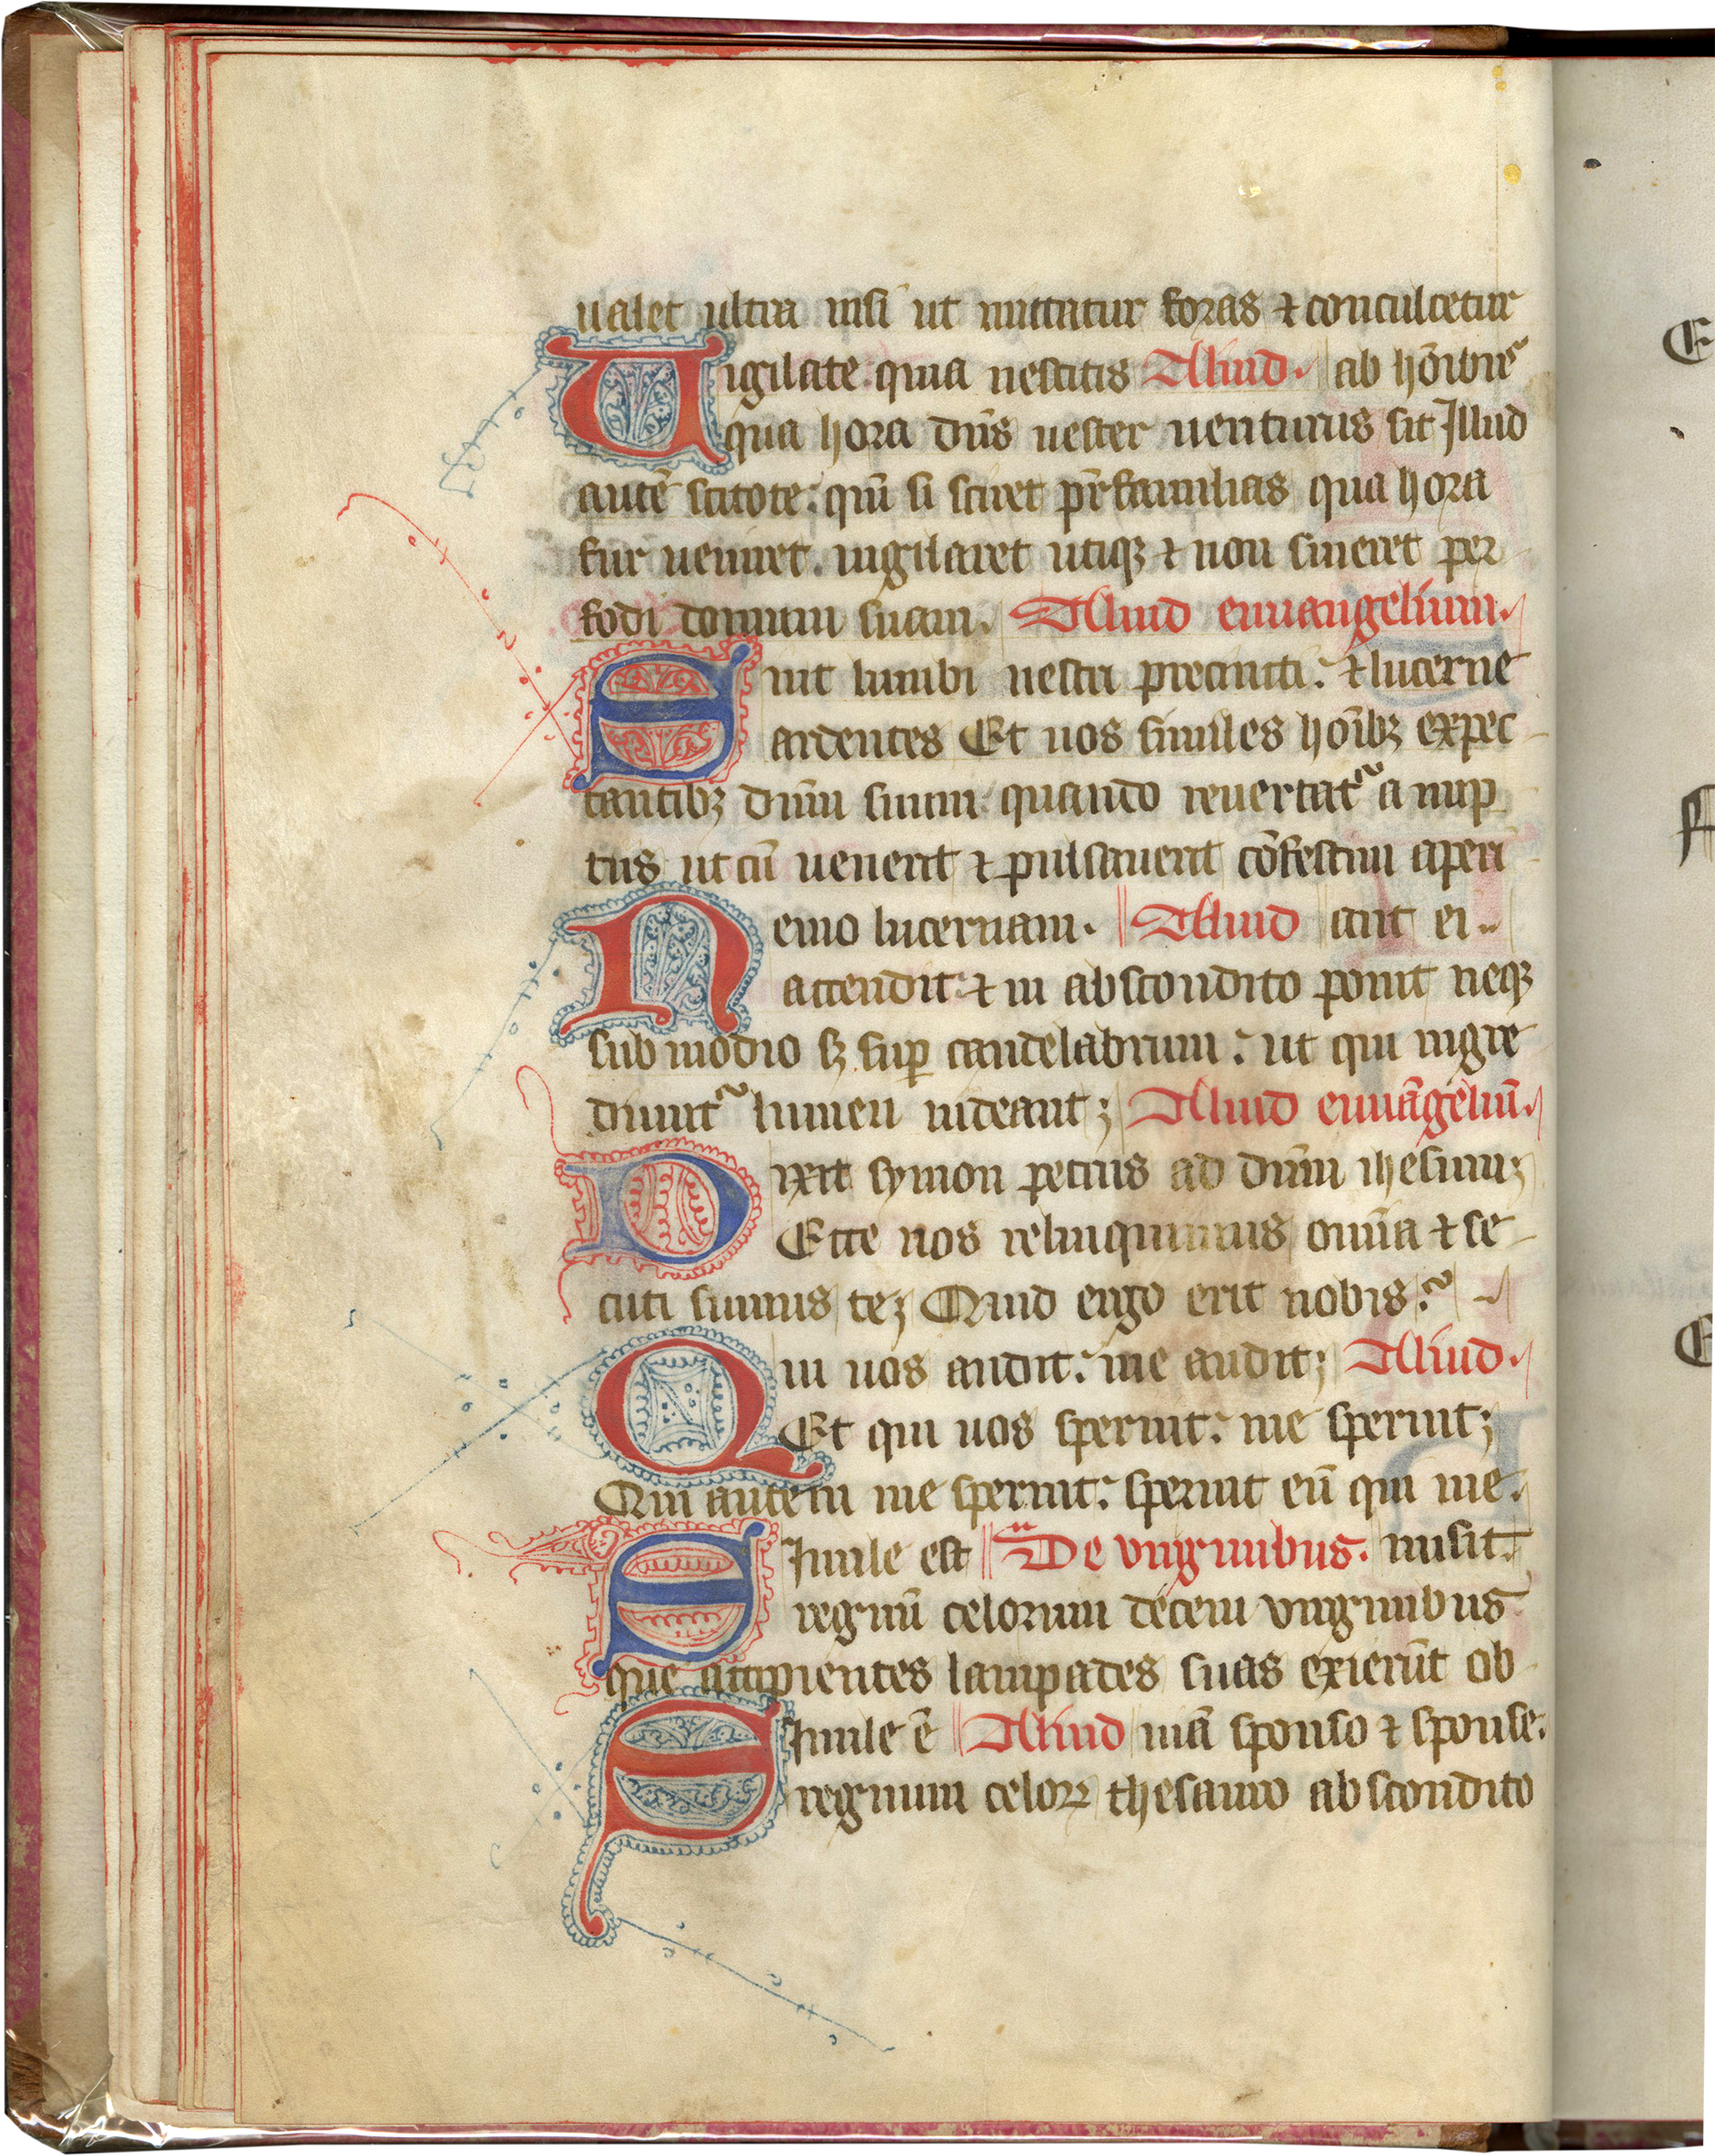 ualet ultra nisi ut mittatur foras ⁊ conculcetur
Uigilate quia nescitis Aliud. ab hōībus
qua hora dn̄s uester uenturus sit Illud
autē scitote. qm̄ si sciret pr̄familias qua hora
fur ueniret. uigilaret utiqꝫ ⁊ non sineret per
fodi domum suam. Aliud euuangelium.
Sint lumbi uestri precincti. ⁊ lucerne
ardentes Et uos similes hoībꝫ expec
tantibꝫ dnm̄ suum quando reuertat᷑ a nup
tiis ut cū uenerit ⁊ pulsauerit cōfestim aperi
Nemo lucernam. Aliud ant ei..
accendit ⁊ in abscondito ponit neqꝫ
sub modio sꝫ suꝑ candelabrum. ut qui ingre
diunt᷑ lumen uideant; Aliud euuāgeliū.
Dixit symon petrus ad dnm̄ ihesum;
Ecce nos relinquimus omīa ⁊ se
cuti sumus te; Quid ergo erit nobis.
Qui uos audit. me audit; Aliud.
Et qui uos spernit. me spernit;
Qui autem me spernit. spernit eū qui me.
Simile est De virginibus. misit.
regnū celorum decem virginibus
que accipientes lampades suas exierūt ob
Simile ē Aliud uiā sponso ⁊ sponse.
regnum celoꝝ thesauro abscondito